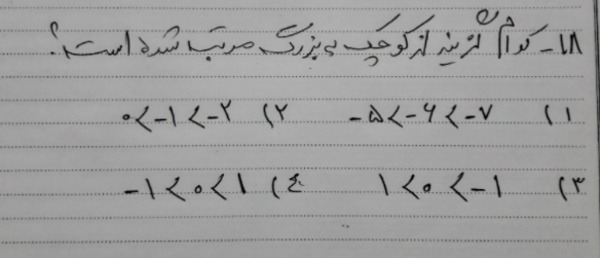 ۱۸- کدام گزینه از کوچک به بزرگ مرتب شده است؟
۱) -۵<-۶<-۷ ۲) ۰<-۱<-۲
۳) ۱<۰<-۱ ۴) -۱<۰<۱